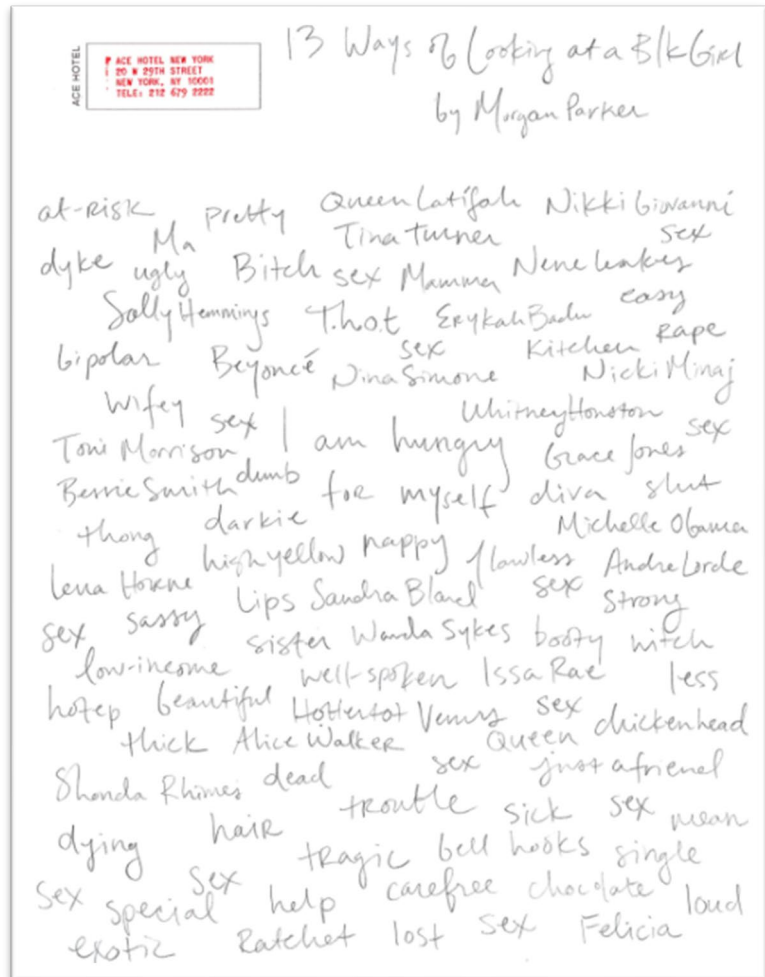 ACE HOTEL
ACE HOTEL NEW YORK
20 W 29TH STREET
NEW YORK, NY 10001
TELE: 212 679 2222
13 Ways of Looking at a Blk Girl
by Morgan Parker
at-risk pretty Queen Latifah Nikki Giovanni
Ma Tina Turner sex
dyke ugly Bitch sex Mamma Nene Leakes
Sally Hemmings T.h.o.t Erykah Badu easy
bipolar Beyoncé sex Kitchen Rape
Nina Simone Nicki Minaj
Wifey sex Whitney Houston
Toni Morrison I am hungry Grace Jones sex
Bessie Smith dumb for myself diva slut
thong darkie Michelle Obama
Lena Horne high yellow nappy flawless Andre Lorde
sex sassy Lips Sandra Bland sex strong
sister Wanda Sykes booty witch
low-income well-spoken Issa Rae less
hotep beautiful Hottentot Venus sex
thick Alice Walker Queen chickenhead
Shonda Rhimes dead sex just a friend
dying hair trouble sick sex mean
tragic bell hooks single
sex special sex help carefree chocolate loud
exotic Ratchet lost sex Felicia